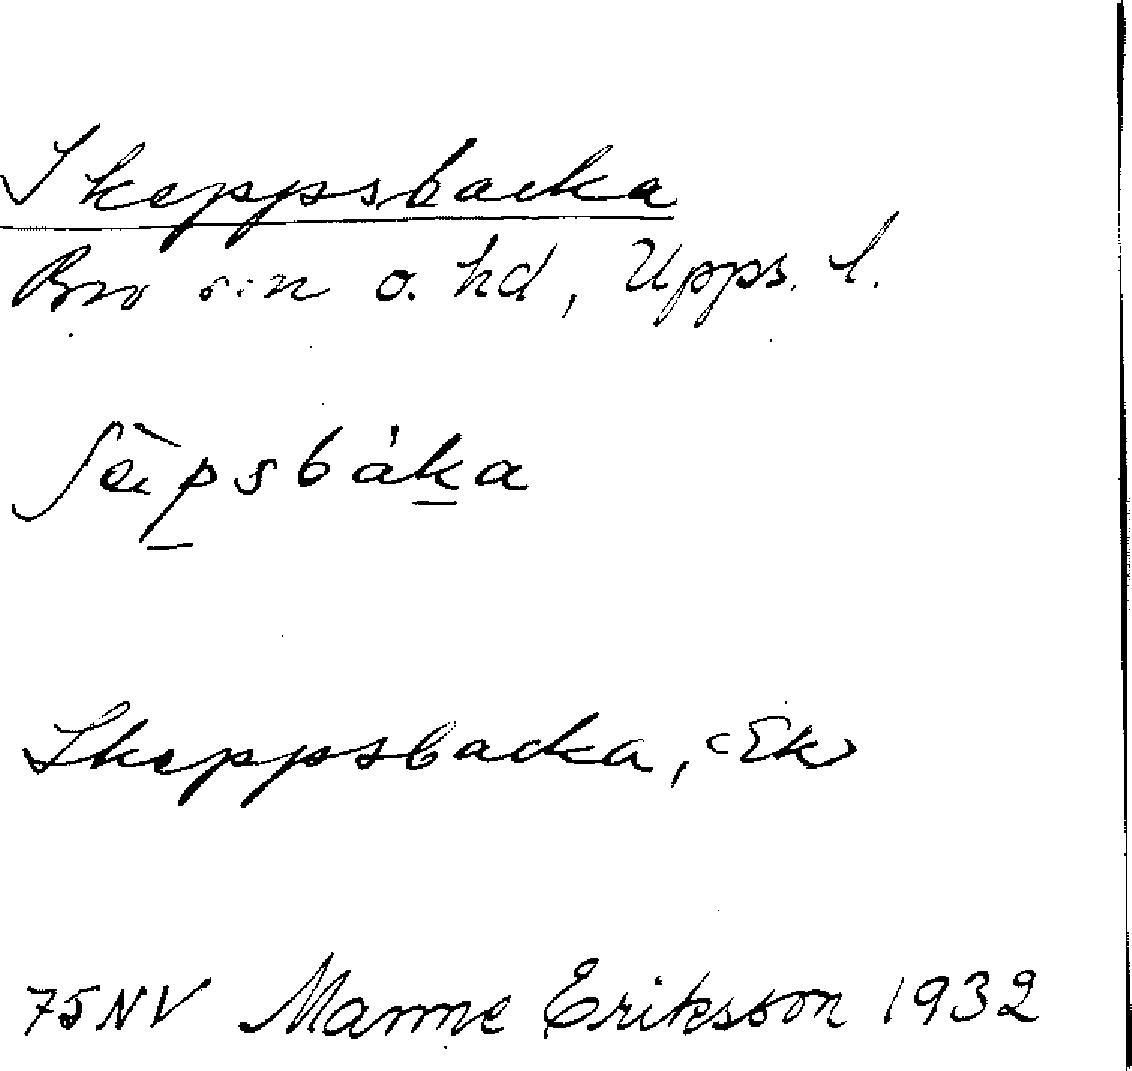 Skeppsbacka
Bro s:n o. hd, Upps. l.
ʃèpsbáka
Skeppsbacka, Ek
75NV Manne Eriksson 1932